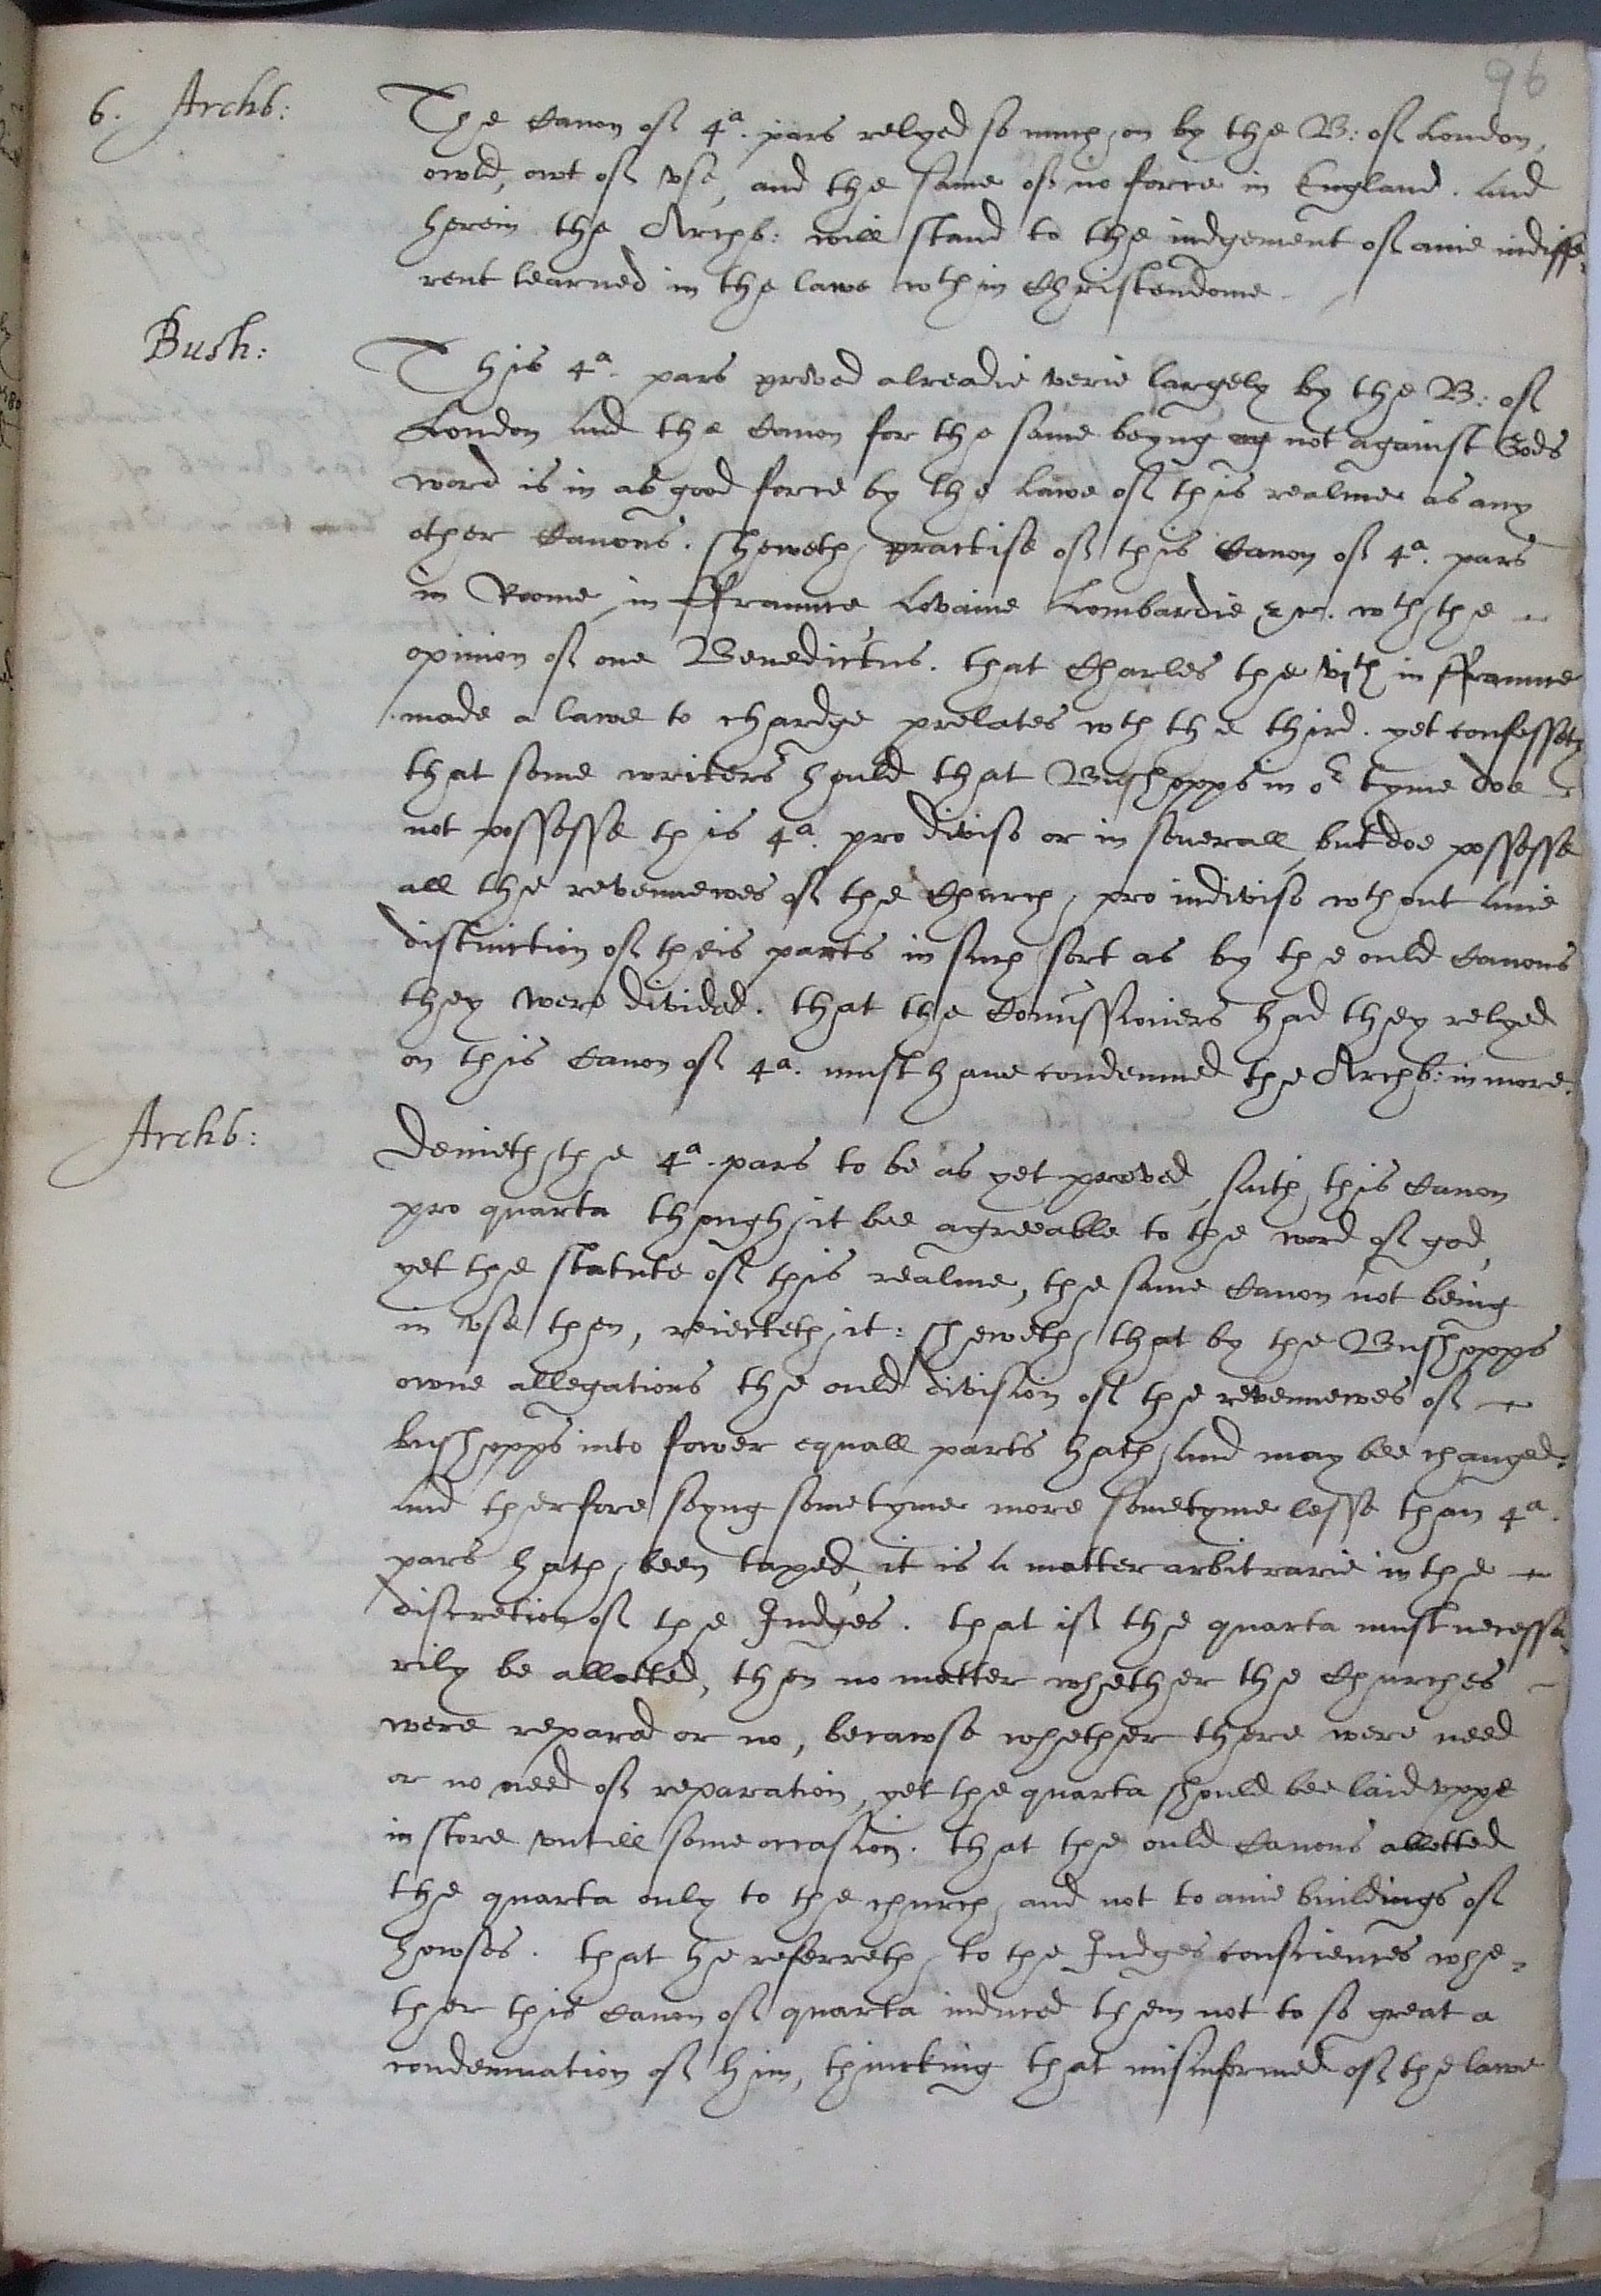 96
6. Archb: The Canon of 4a. pars relyed so much on by the B: of London,
owld, owt of vse, and the same of no force in England. And
herein the Archb: will stand to the iudgement of anie indiffe-
rent learned in the lawe wthin Christendome
Bush: This 4a. pars proved alreadie verie largely by the B: of
London And the Canon for the same beyng not against Gods
word is in as good force by the lawe of this realme as any
other Canons. sheweth practise of this Canon of 4a. pars
in Roome in ffraunce Lovaine Lombardie &c. wth the
opinion of one Benedictus. that Charles the vjth in ffraunce
made a lawe to chardge prelates wth the third. yet confesseth
that some writers hould that Bushopps in or tyme doe
not possesse this 4a. pro diviso or in severall, but doe possesse
all the revennewes of the Church, pro indiviso wthout anie
distinction of theis parts in such sort as by the ould Canons
they were divided. that the Comissioners had they relyed
on this Canon of 4a. must have condemned the Archb: in more.
Archb: Denieth the 4a. pars to be as yet proved, sith this Canon
pro quarta though it bee agreeable to the word of god,
yet the statute of this realme, the same Canon not being
in vse then, reiecteth it: sheweth that by the Bushopps
owne allegations the ould division of the revennewes of
bushopps into fower equall parts hath And may bee changed.
And therfore seyng sometyme more sometyme lesse than 4a.
pars hath been taxed, it is a matter arbitrarie in the
discretion of the Judges. that if the quarta must necessa-
rily be allotted, then no matter whether the Churches
were repared or no, becawse whether there were need
or no need of reparation, yet the quarta should bee laid vppe
in store vntill some occasion. that the ould Canons allotted
the quarta only to the church, and not to anie buildings of
howses. that he referreth to the Judges consciences whe-
ther this Canon of quarta induced them not to so great a
condemnation of him, thincking that misinformed of the lawe